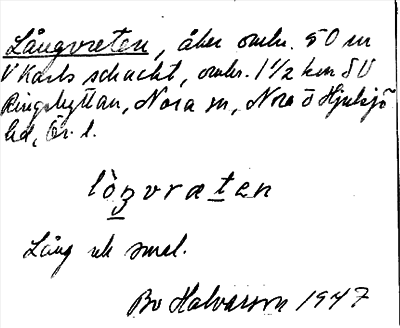 Långvreten, åker omkr. 50 m
V Karls schakt, omkr. 1 1/2 km SV
Ringshyttan, Nora sn, Nora o Hjulsjö
hd, Ör. l.
lòŋvrætεn
Lång ock smal.
Bo Halvarson 1947